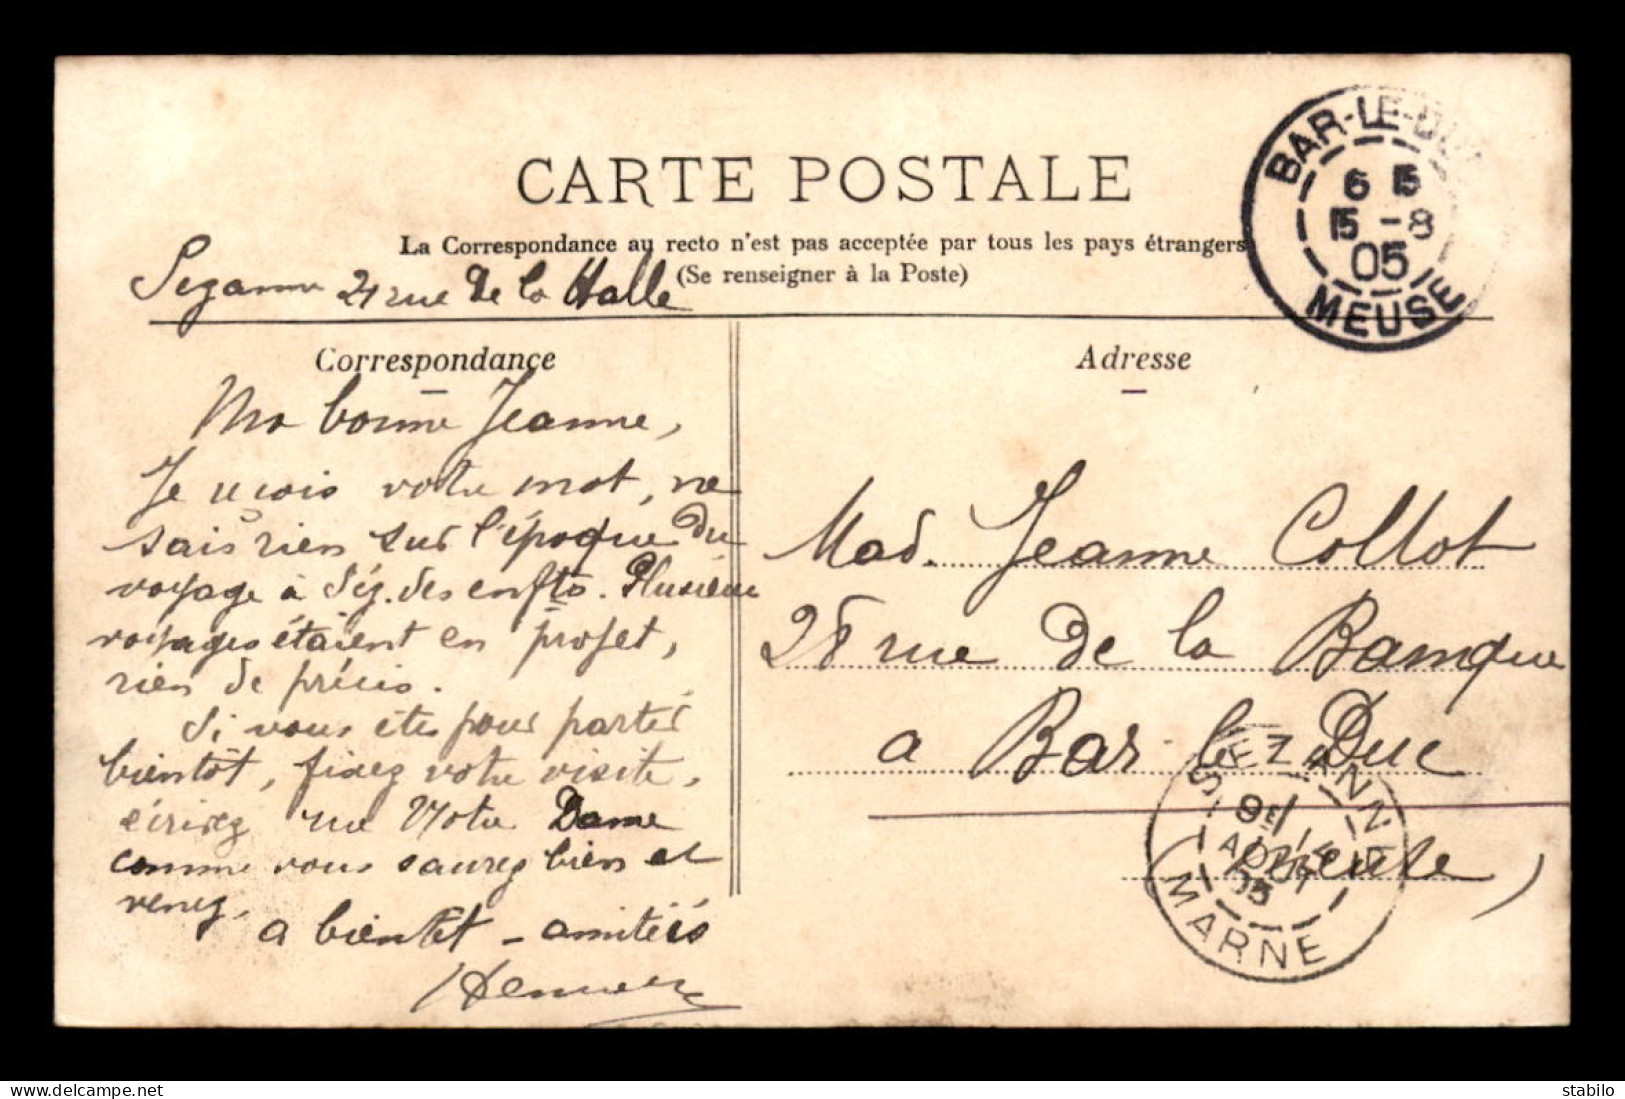 CARTE POSTALE
La Correspondance au recto n'est pas acceptée par tous les pays étrangers
(Se renseigner à la Poste)
Sezanne 21 rue de la Halle
Correspondance
Ma bonne Jeanne,
Je reçois votre mot, ne
sais rien sur l'époque du
voyage à Séz. des enfts. Plusieurs
voyages étaient en projet,
rien de précis.
Si vous êtes pour partir
bientôt, fixez votre visite,
écrivez rue Notre Dame
comme vous saurez bien et
venez,
a bientôt - amitiés
Adresse
Mad. Jeanne Collot
28 rue de la Banque
a Bar-le-Duc
(Meuse)
BAR-LE-DUC
6 15
15 -8
05
MEUSE
SEZANNE
9E
AOUT
05
MARNE
stabilo